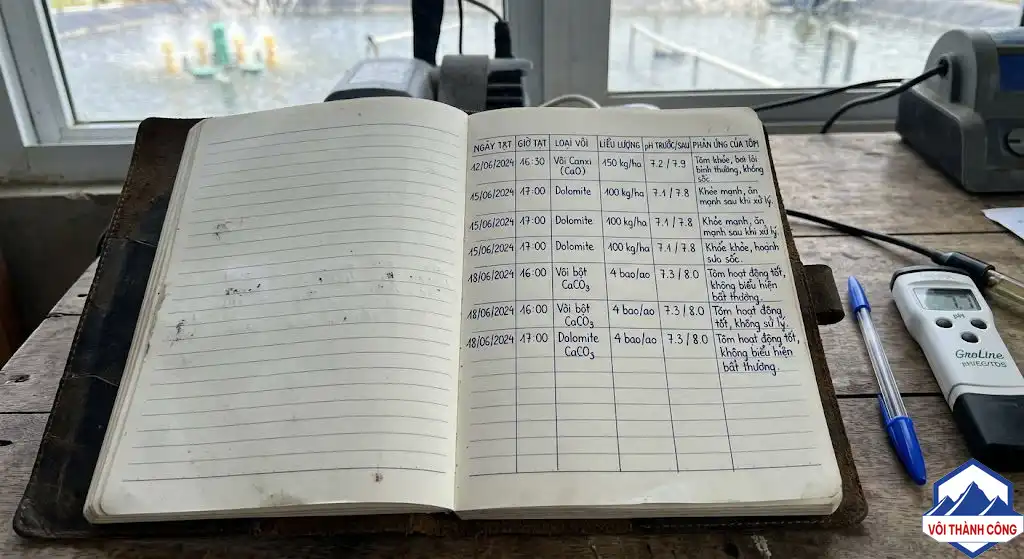 NGÀY TẠT GIỜ TẠT LOẠI VÔI LIỀU LƯỢNG pH TRƯỚC/SAU PHẢN ỨNG CỦA TÔM
12/06/2024 16:30 Vôi Canxi (CaO) 150 kg/ha 7.2 / 7.9 Tôm khỏe, bơi lội bình thường, không sốc
15/06/2024 17:00 Dolomite 100 kg/ha 7.1 / 7.8 Khỏe mạnh, ăn mạnh sau khi xử lý.
15/06/2024 17:00 Dolomite 100 kg/ha 7.1 / 7.8 Khỏe mạnh, ăn mạnh sau khi xử lý.
15/06/2024 17:00 Dolomite 100 kg/ha 7.1 / 7.8 Khỏe, sốc.
18/06/2024 16:00 Vôi bột CaCO₃ 4 bao/ao 7.3 / 8.0 Tôm hoạt động tốt, không biểu hiện bất thường.
18/06/2024 16:00 Vôi bột CaCO₃ 4 bao/ao 7.3 / 8.0 Tôm hoạt động tốt, không sử lý.
18/06/2024 17:00 Dolomite CaCO₃ 4 bao/ao 7.3 / 8.0 Tôm hoạt động tốt, không biểu hiện bất thường.
pH
GroLine
pH/EC/TDS
VÔI THÀNH CÔNG